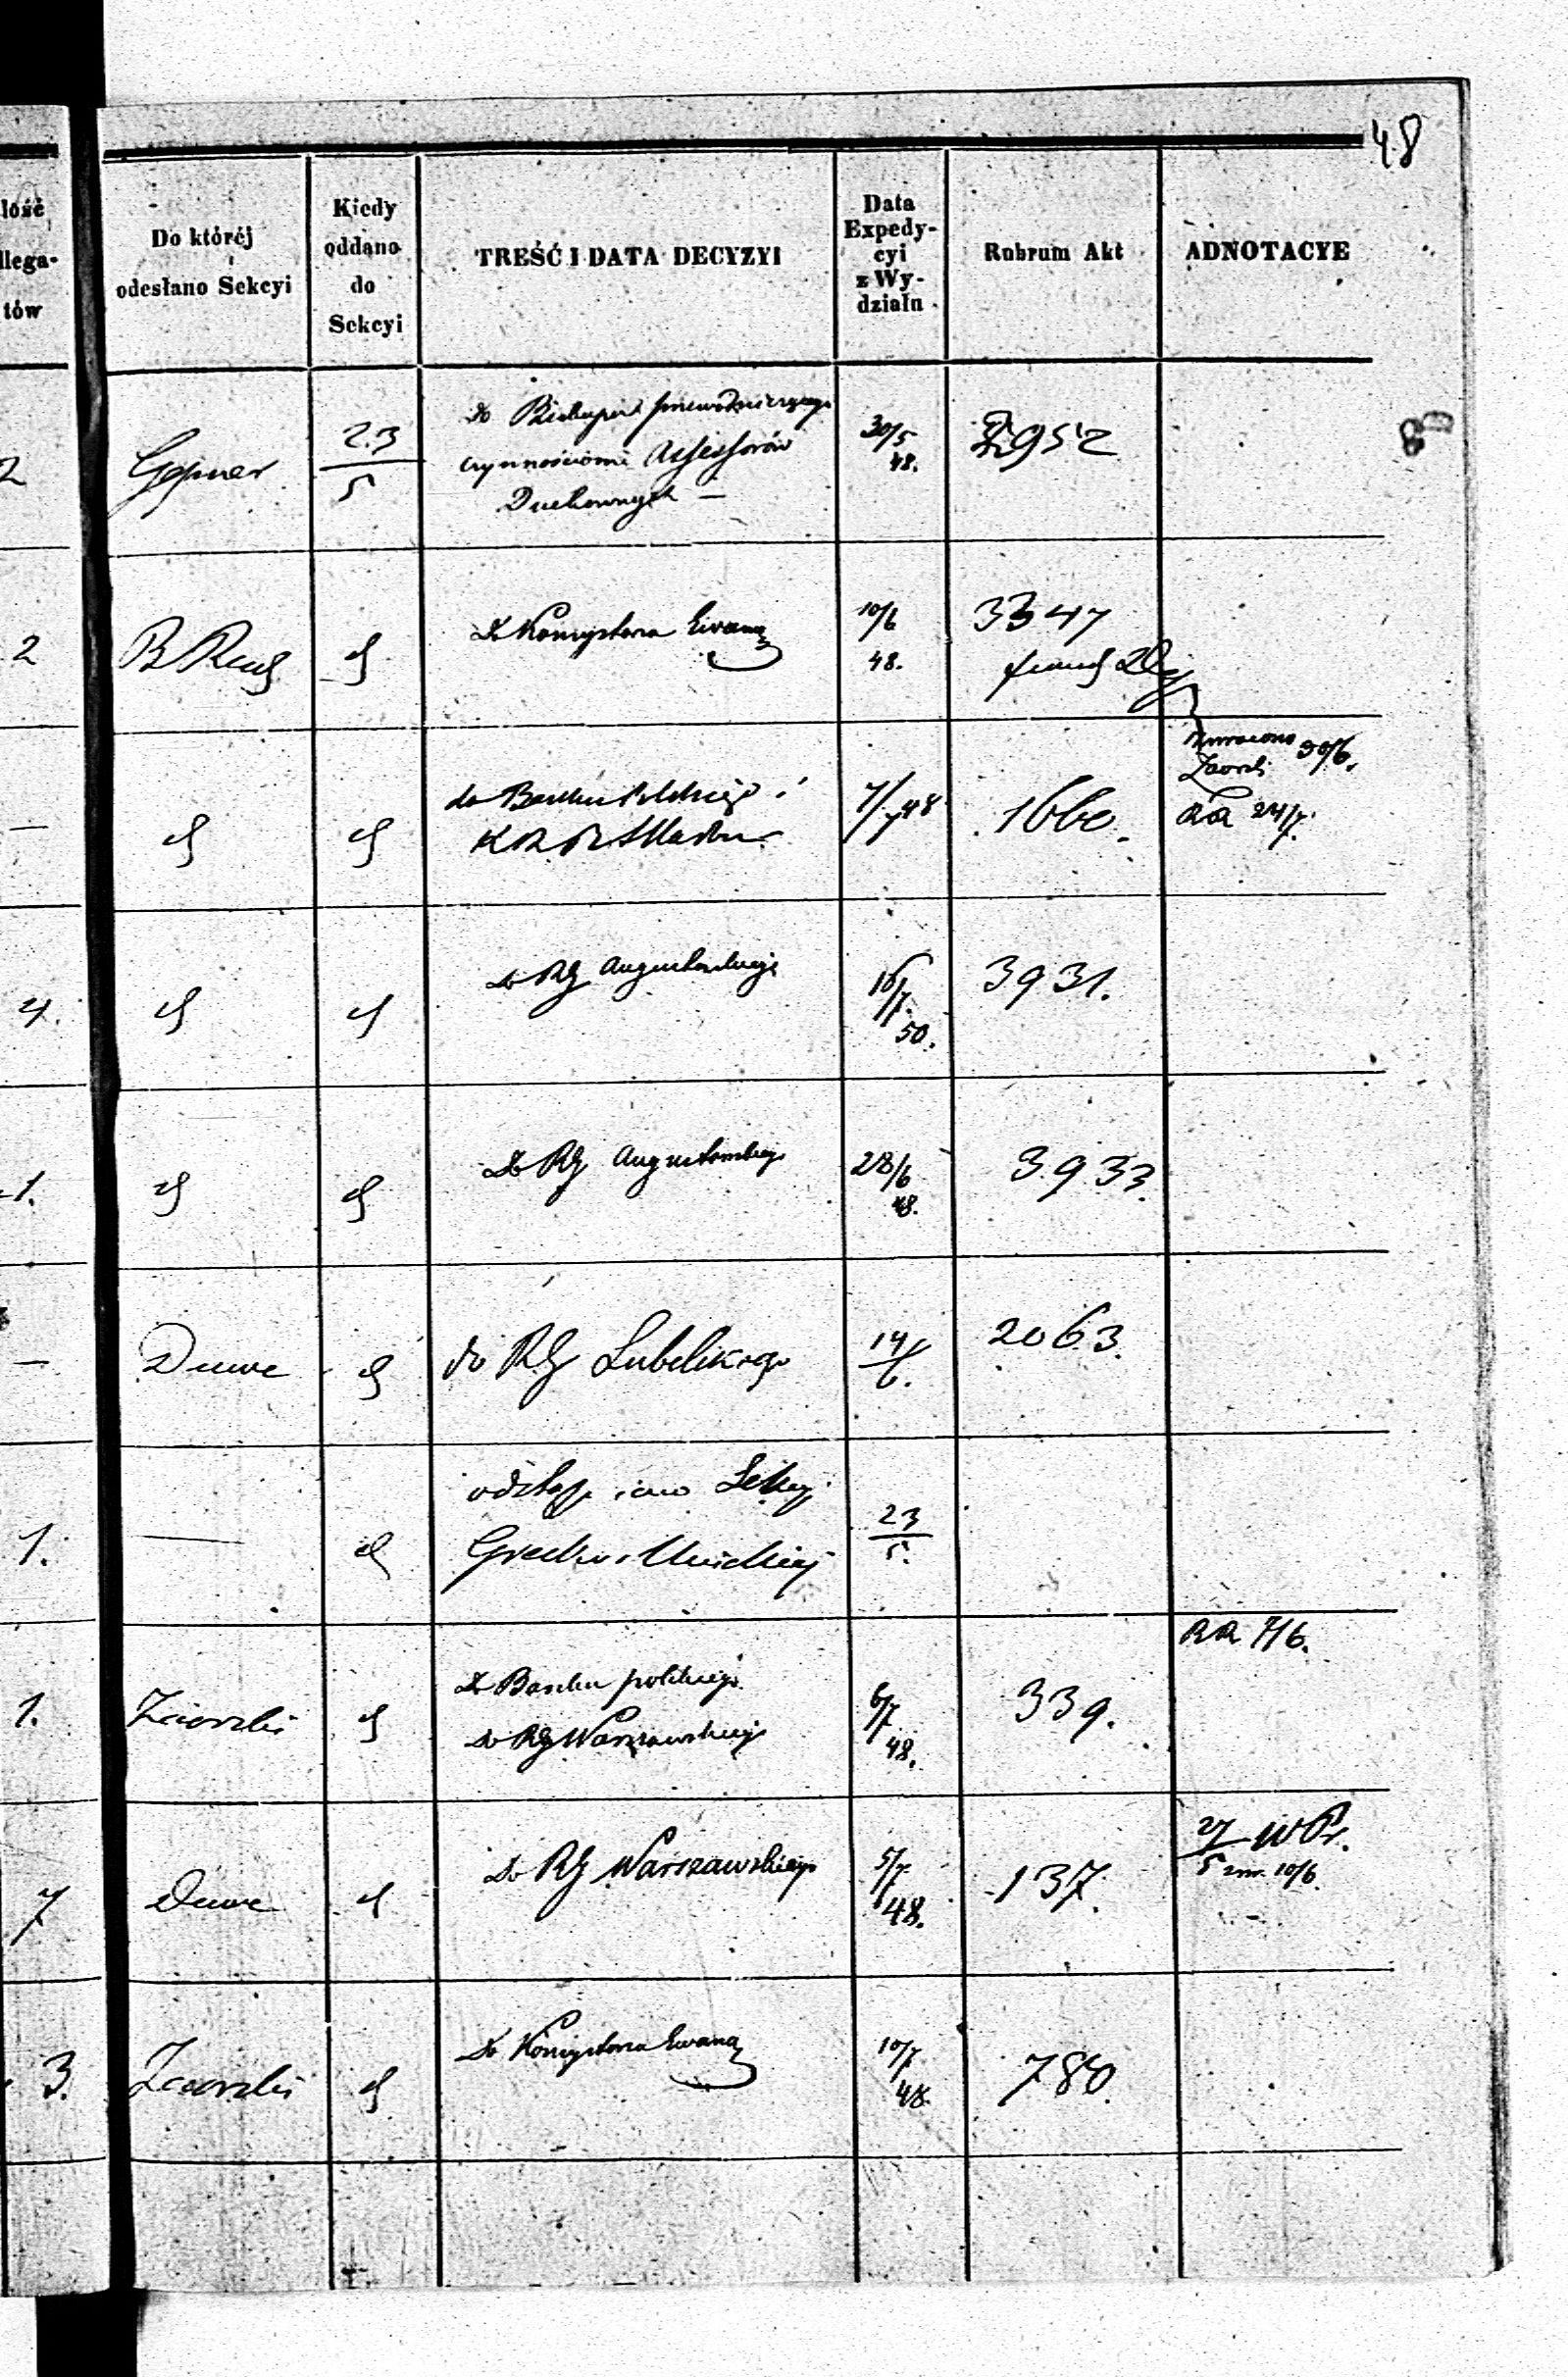 48
lość
llega-
tów
Do któréj
odesłano Sekcyi
Kiedy
oddano
do
Sekcyi
TREŚĆ I DATA DECYZYI
Data
Expedy-
cyi
z Wy-
działu
Rubrum Akt
ADNOTACYE
2
Gepner
23
5
do Biskupa przewodniczącego
czynnościom Assessorów
Duchownych —
30/5
48.
2952
2
Do Konsystorza Ewang
10/6
48.
3347
—
do Banku Polskiego i
K R P Skarbu
7/7 48
1660.
Zwrócono 30/6.
RR 24/7.
4.
do RG Augustowskiego
16/7.
50.
3931.
1.
Do RG Augustowskiego
28/6
48.
3933.
—
Duwe
do RG Lubelskiego
14/6.
2063.
1.
—
odstąpiono Sekcyi
Grecko-Unickiej
23
5.
1.
Zaorski
Do Banku polskiego
do RG Warszawskiego
6/7
48.
339.
RR 7/6.
7
Duwe
Do RG Warszawskiego
5/7
48.
137.
27/5 WPr.
zwr. 10/6.
3.
Zaorski
Do Konsystorza Ewang
10/7
48.
780.